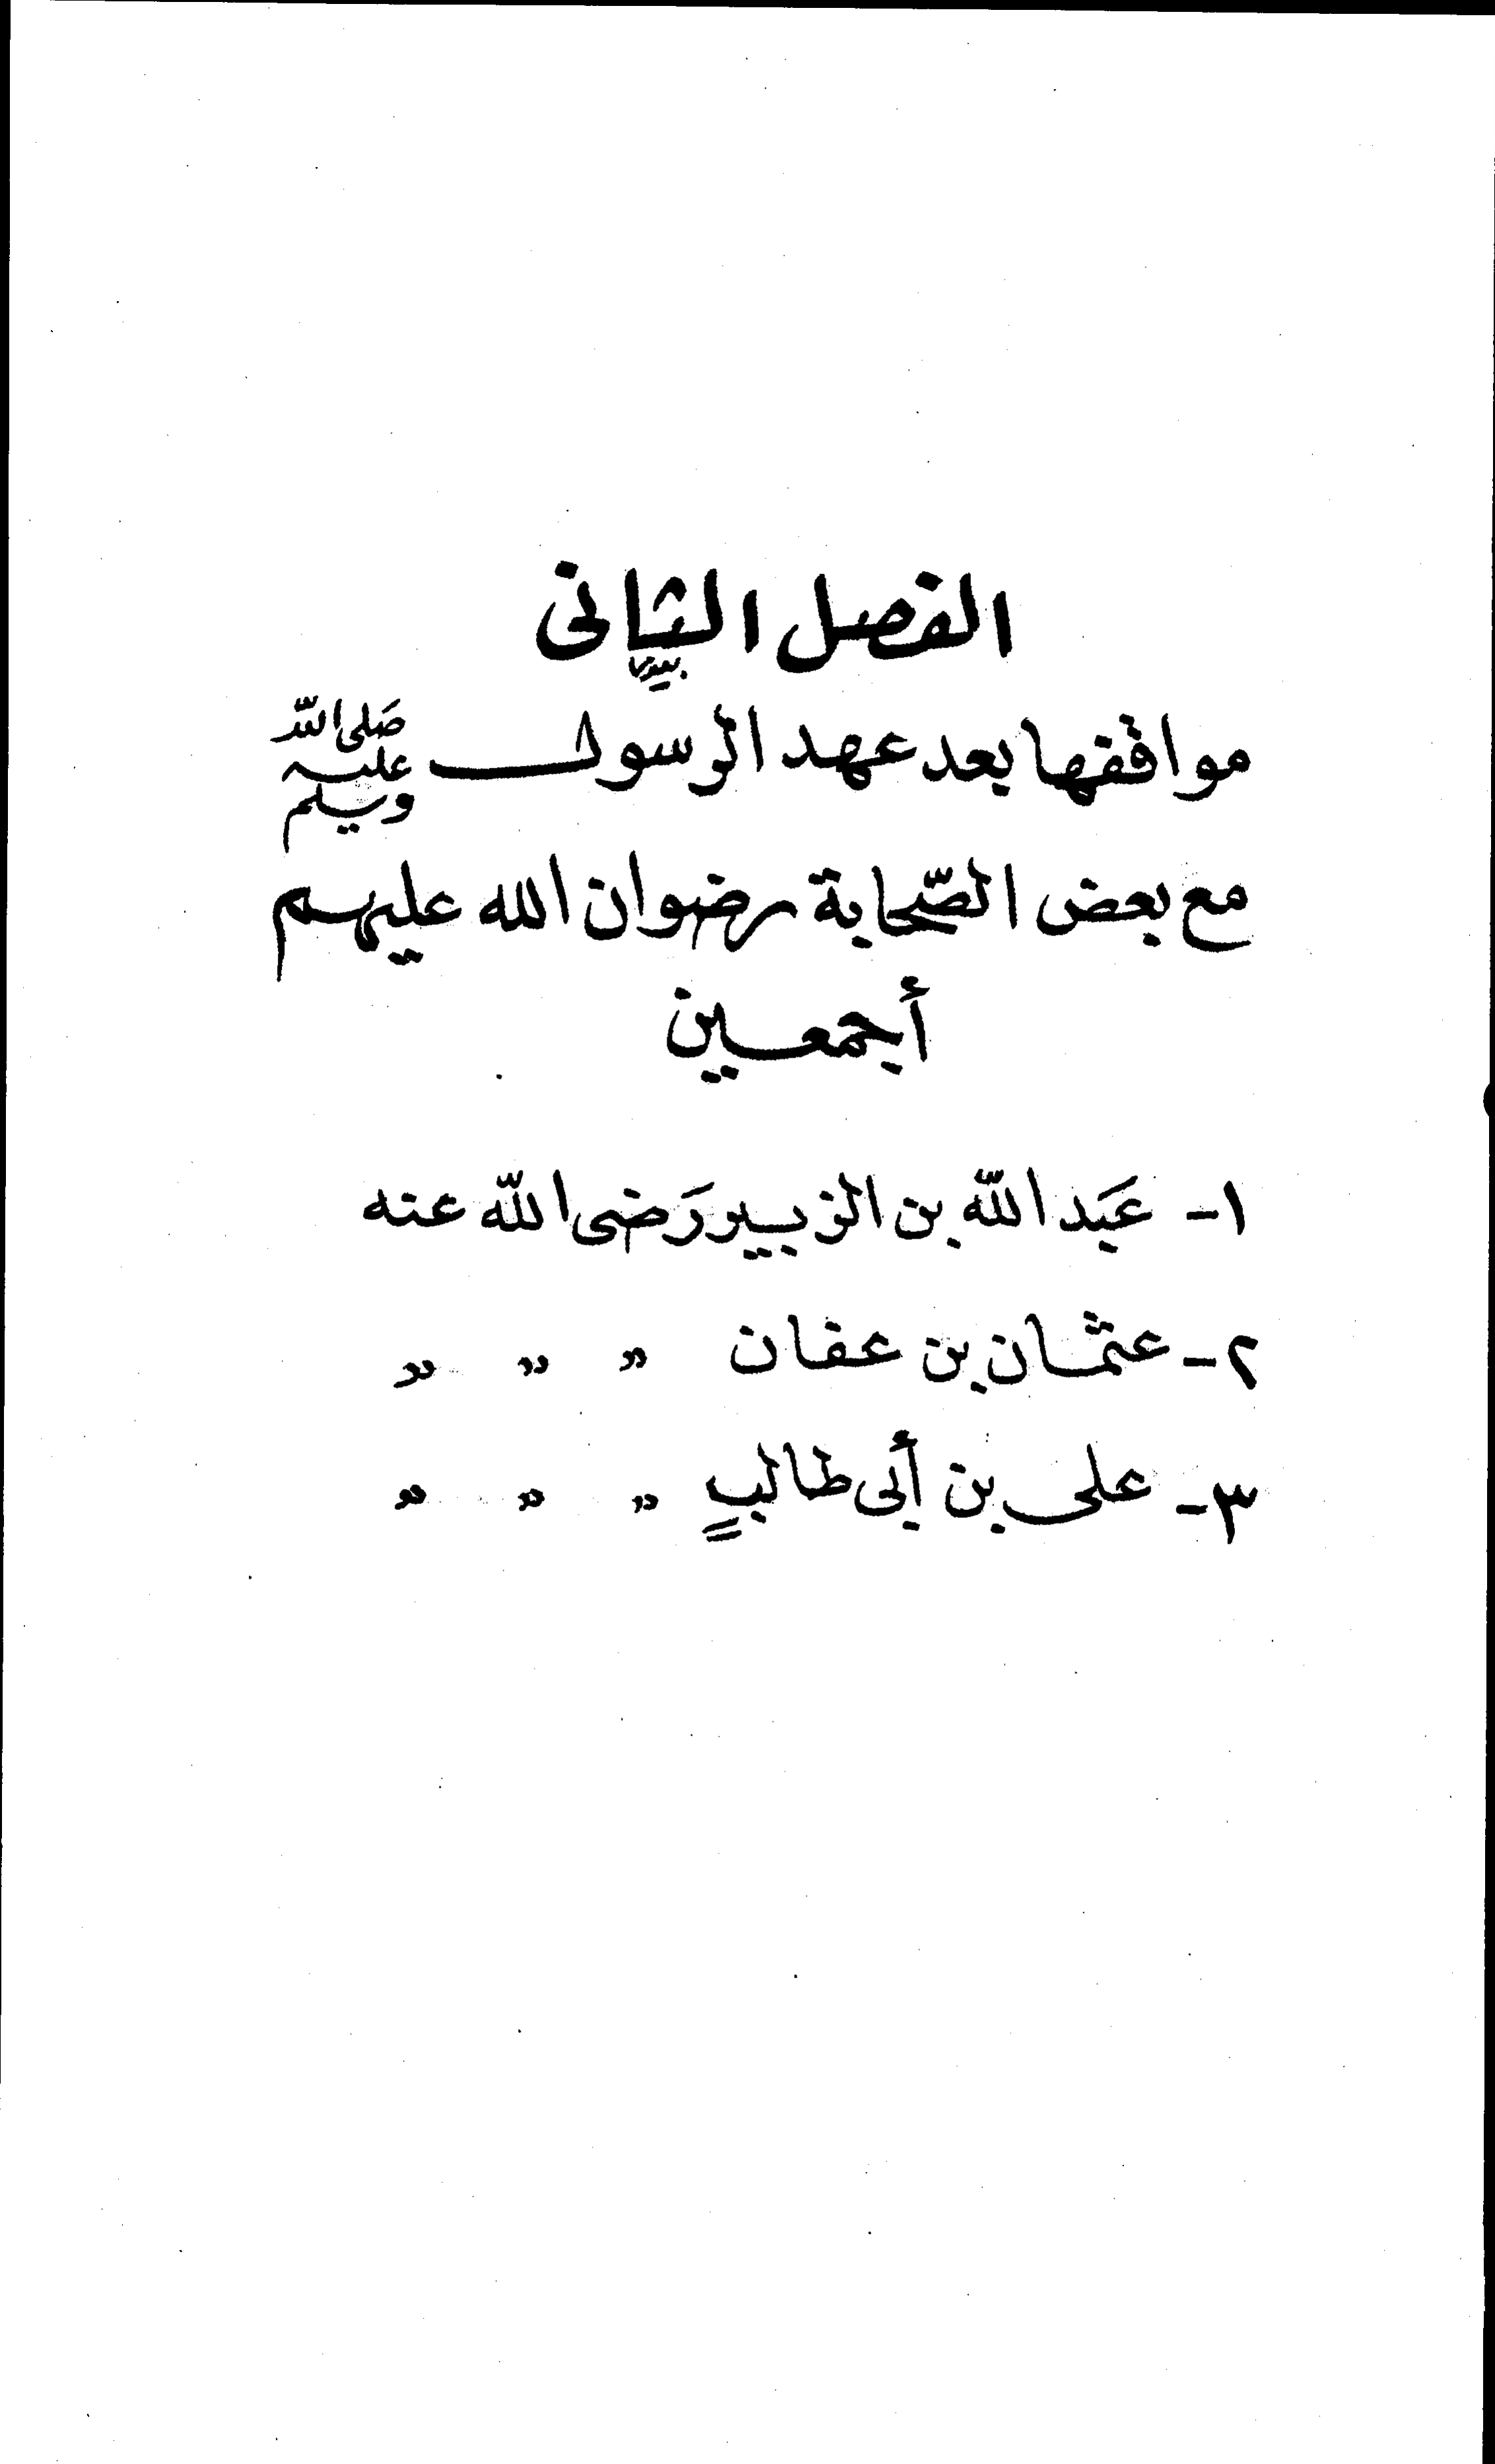 الفصل الثانى
مواقفها بعد عهد الرسول صلى الله عليه وسلم
مع بعض الصّحابة رضوان الله عليهم
أجمعين
١- عَبد اللّه بن الزبير رَضى اللّه عنه
٢- عثمان بن عفان " " "
٣- على بن أبى طالب " " "